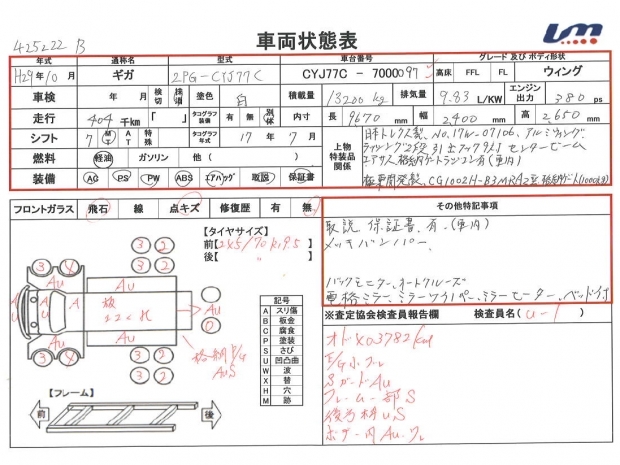 425222 B
車両状態表
年式 通称名 型式 車台番号 グレード及びボディ形状
H29年10月 ギガ 2PG-CYJ77C CYJ77C - 7000097 高床 FFL FL ウィング
車検 年 月 検切 検消 塗色 白 積載量 13200kg 排気量 9.83 L/KW エンジン出力 380 ps
走行 404千km 「 」 タコグラフ装備 有 無 別体 内寸 長 9670 mm 幅 2,400 mm 高 2,650 mm
シフト 7 MT AT 特殊 タコグラフ車 17年 7月
上物特装品関係
日本トレクス製、No.17W-07106、アルミウィング
センタービーム
燃料 軽油 ガソリン 他 ( )
装備 AC PS PW ABS エアバッグ 取説 保証書
極東開発製、CG1002H-B3MRA2型 格納ゲート(1000kg)
フロントガラス 飛石 線 点キズ 修復歴 有 無
その他特記事項
取説 保証書 有、(車内)
メッキバンパー、
バックモニター、オートクルーズ
電格ミラー、ミラーワイパー、ミラーヒーター、ベッド付
【タイヤサイズ】
前【245/70R19.5】
後【 〃 】
3 2
3 2
3 4
Au
Au
Au
3 2
3 2
3 4
記号
A スリ傷
B 板金
C 腐食
P 塗装
S さび
U 凹凸曲
W 波
X 替
H 穴
M 跡
※査定協会検査員報告欄 検査員名( )
オドメ403782km
SガードAu
フレーム一部S
【フレーム】
前 後